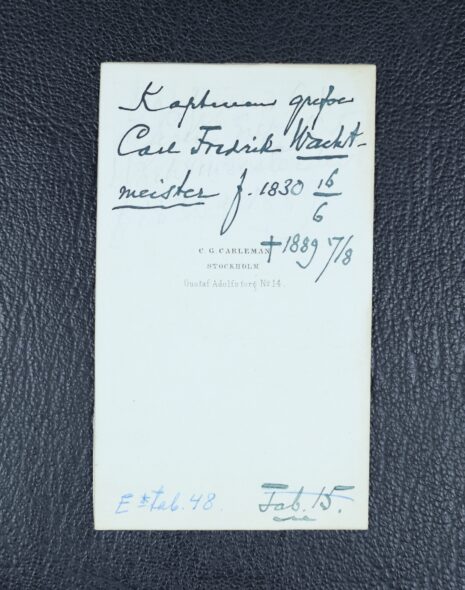 Kaptenen grefve
Carl Fredrik Wacht-
meister f. 1830 16/6
† 1889 7/8
C. G. CARLEMAN
STOCKHOLM
Gustaf Adolfs torg No 14.
Tab. 48.
Tab. 15.